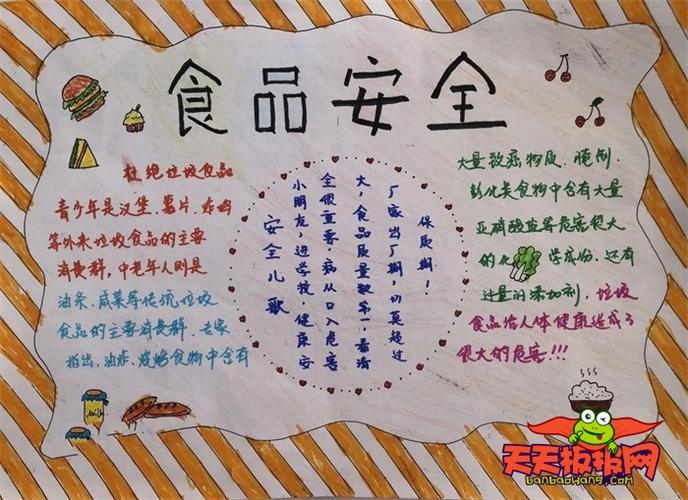 食品安全
杜绝垃圾食品
青少年是汉堡、薯片、炸鸡
等外来垃圾食品的主要
消费群,中老年人则是
油条、咸菜等传统垃圾
食品的主要消费群。专家
指出,油炸、烧烤食物中含有
安全儿歌
小朋友,进学校,健康安
全很重要。病从口入危害
大,食品质量数第,看清
厂家出厂期,切莫超过
保质期!
大量致癌物质、腌制、
彭化类食物中含有大量
亚硝酸盐等危害很大
的化学成份,还有
过量的添加剂,垃圾
食品给人体健康造成了
很大的危害!!!
Milk
天天板报网
banbaowang.com